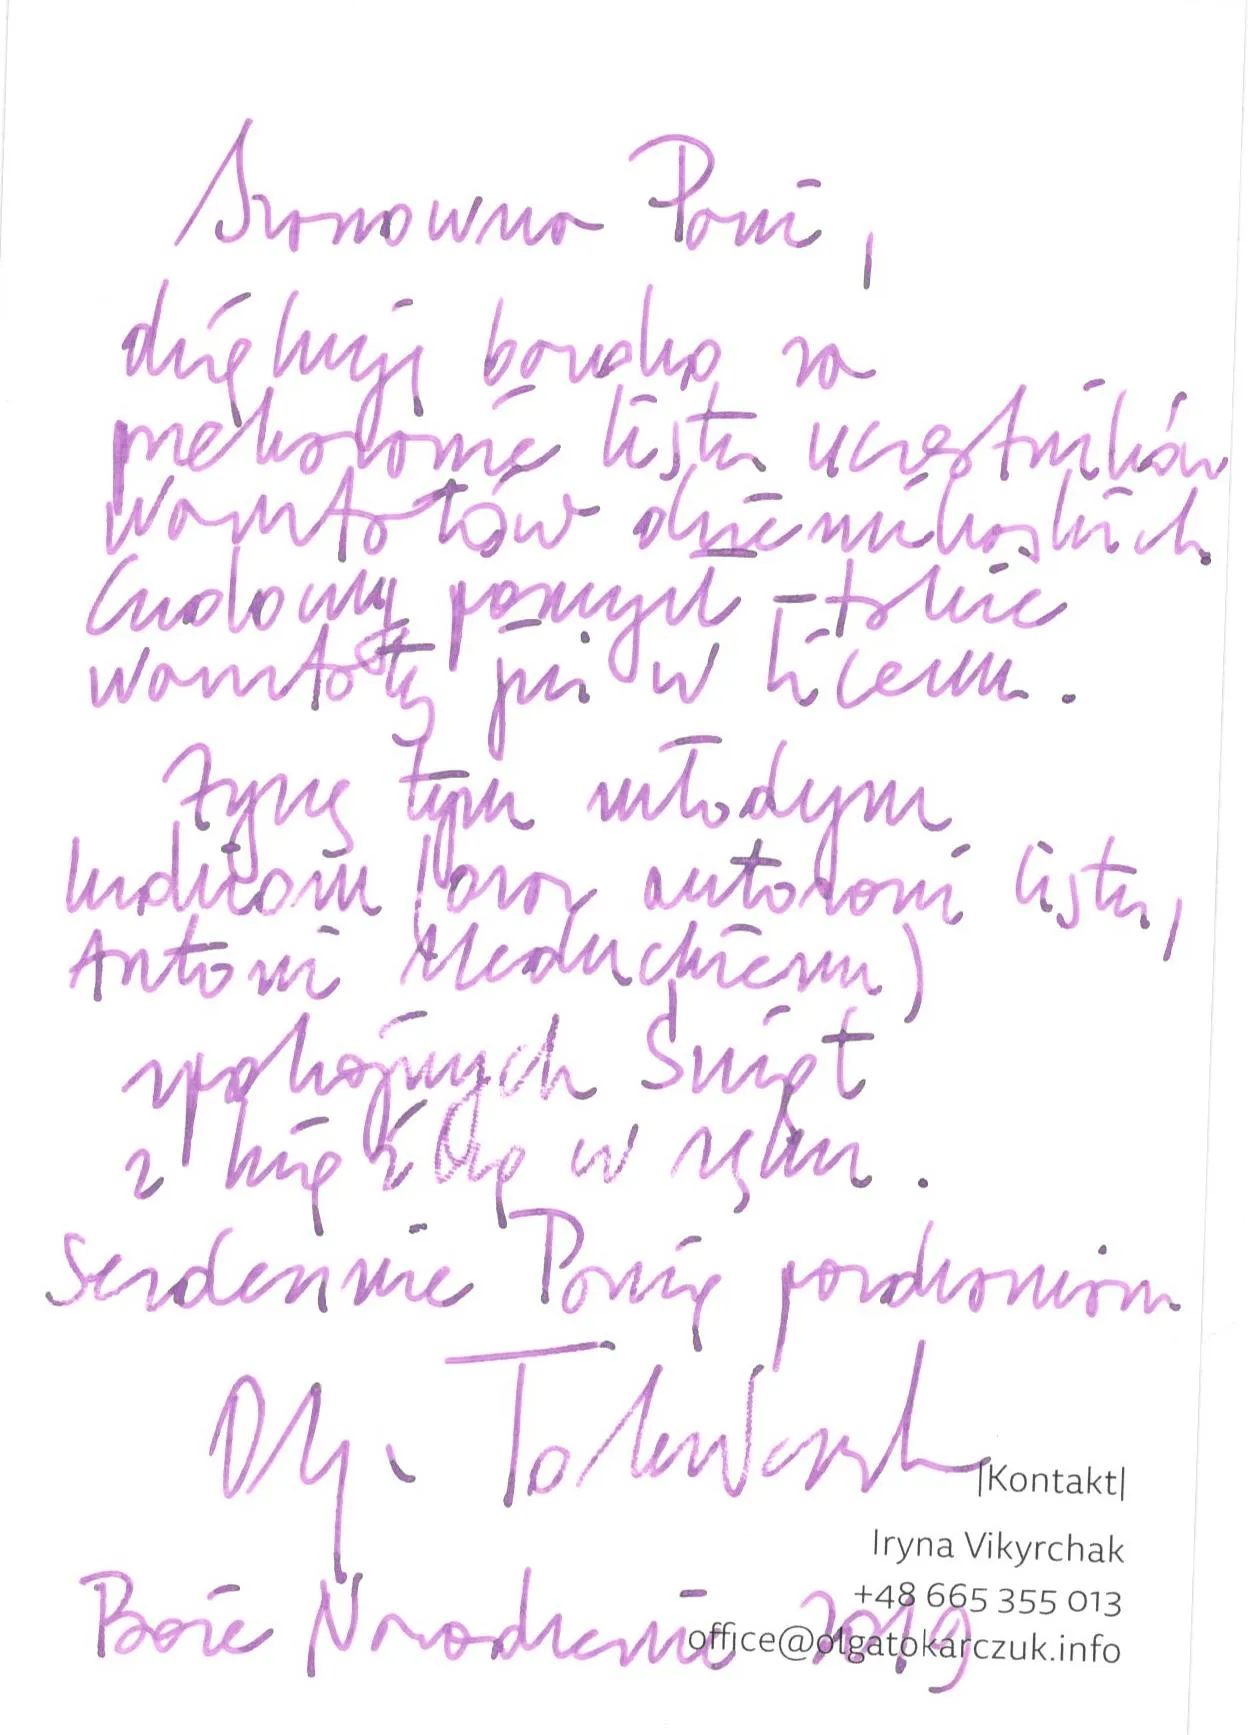 Szanowna Pani,
dziękuję bardzo za
przekazanie listu uczestników
warsztatów dziennikarskich.
Cudowny pomysł - takie
warsztaty już w liceum.
Życzę tym młodym
ludziom (oraz autorowi listu,
Antoni
spokojnych Świąt
z książką w ręku.
Serdecznie Panią pozdrawiam
Olga Tokarczuk
|Kontakt|
Iryna Vikyrchak
+48 665 355 013
office@olgatokarczuk.info
Boże Narodzenie 2019